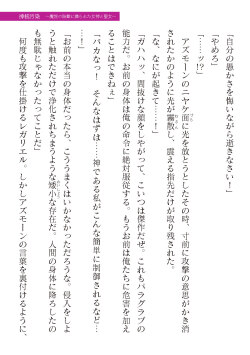 神核汚染 ～魔悦の脳蝕に堕ちた女神と聖女～
「自分の愚かさを悔いながら逝きなさい！」
「やめろ」
「……ッ!?」
アズモーンのニヤケ面に光を放とうとしたその時、寸前に攻撃の意思がかき消
されたかのように光が霧散し、震える指先だけが取り残された。
「な、なにが起きて……！」
「ガハハッ、間抜けな顔をしやがって、こいつは傑作だぜ。これもパラグラブの
能力だ。お前の身体は俺の命令に絶対服従する。もうお前は俺たちに危害を加え
ることはできねぇ」
「バカなっ！　そんなはずは……神である私がこんな簡単に制御されるなど…
…！」
「お前の本当の身体だったら、こううまくはいかなかっただろうな。侵入をしよ
うと触れただけで浄化されちまうような矮小な存在だ。人間の身体に降ろしたの
も無駄じゃなかったってことだ」
何度も攻撃を仕掛けるレガリエル。しかしアズモーンの言葉を裏付けるように、